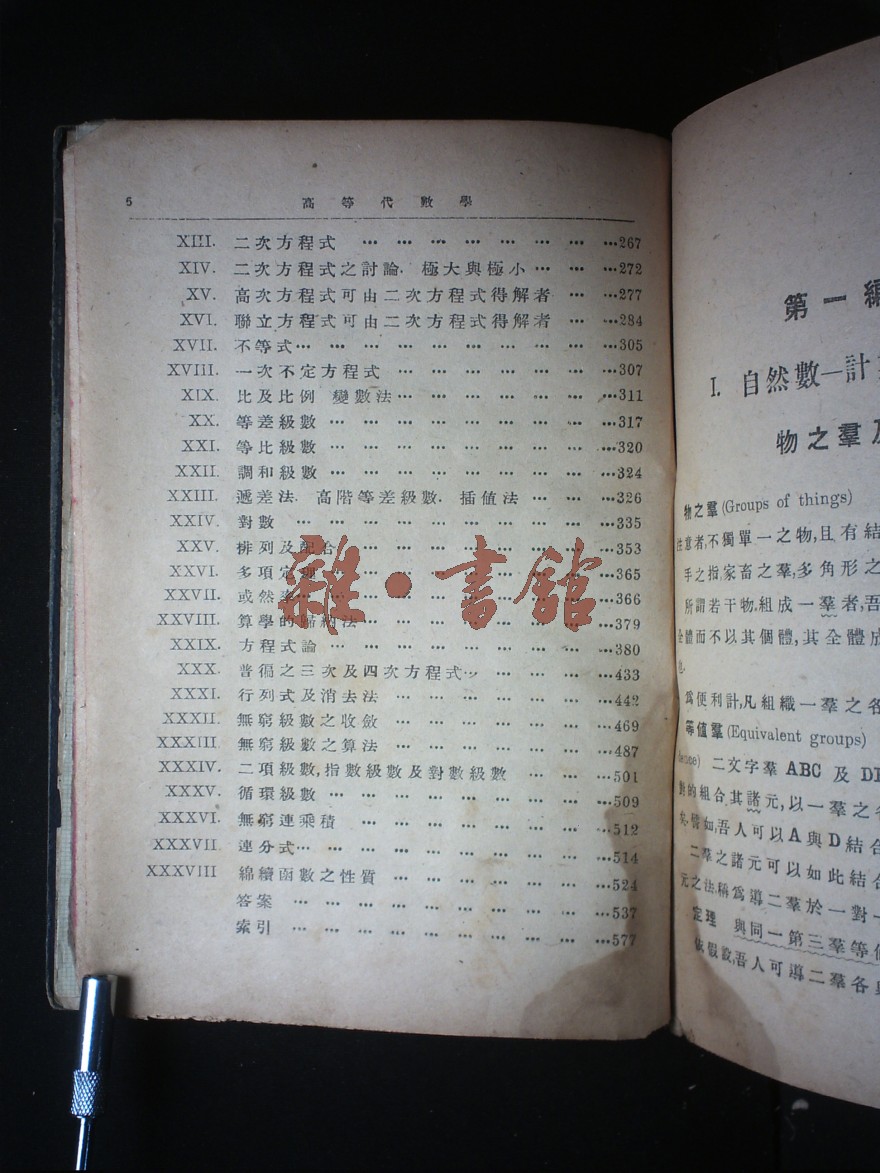 5 高等代數學
XIII. 二次方程式 … … … … … … … …267
XIV. 二次方程式之討論. 極大與極小… … …272
XV. 高次方程式可由二次方程式得解者 … …277
XVI. 聯立方程式可由二次方程式得解者 … …284
XVII. 不等式… … … … … … … … … …305
XVIII. 一次不定方程式 … … … … … … …307
XIX. 比及比例 變數法… … … … … … …311
XX. 等差級數 … … … … … … … … …317
XXI. 等比級數 … … … … … … … … …320
XXII. 調和級數 … … … … … … … … …324
XXIII. 遞差法. 高階等差級數. 插值法 … … …326
XXIV. 對數 … … … … … … … … … …335
XXV. 排列及配合 … … … … … … … …353
XXVI. 多項定理 … … … … … … … …365
XXVII. 或然率 … … … … … … … …366
XXVIII. 算學的歸納法… … … … … … …379
XXIX. 方程式論 … … … … … … … … …380
XXX. 普徧之三次及四次方程式… … … … …433
XXXI. 行列式及消去法 … … … … … … …442
XXXII. 無窮級數之收斂 … … … … … … …469
XXXIII. 無窮級數之算法 … … … … … … …487
XXXIV. 二項級數,指數級數及對數級數 … … …501
XXXV. 循環級數 … … … … … … … … …509
XXXVI. 無窮連乘積 … … … … … … … …512
XXXVII. 連分式… … … … … … … … … …514
XXXVIII 綿續函數之性質 … … … … … … …524
答案 … … … … … … … … … …537
索引 … … … … … … … … … …577
雜·書館
第一編
I. 自然數—計
物之羣及
物之羣 (Groups of things)
注意者,不獨單一之物,且有結
手之指,家畜之羣,多角形之
所謂若干物,組成一羣者,吾
全體而不以其個體,其全體成
也.
爲便利計,凡組織一羣之各
等値羣 (Equivalent groups)
二文字羣 ABC 及 DE
對的組合,其諸元,以一羣之各
矣.譬如,吾人可以A與D結合
二羣之諸元可以如此結合
元之法,稱爲導二羣於一對一
定理 與同一第三羣等值
依假設,吾人可導二羣各與